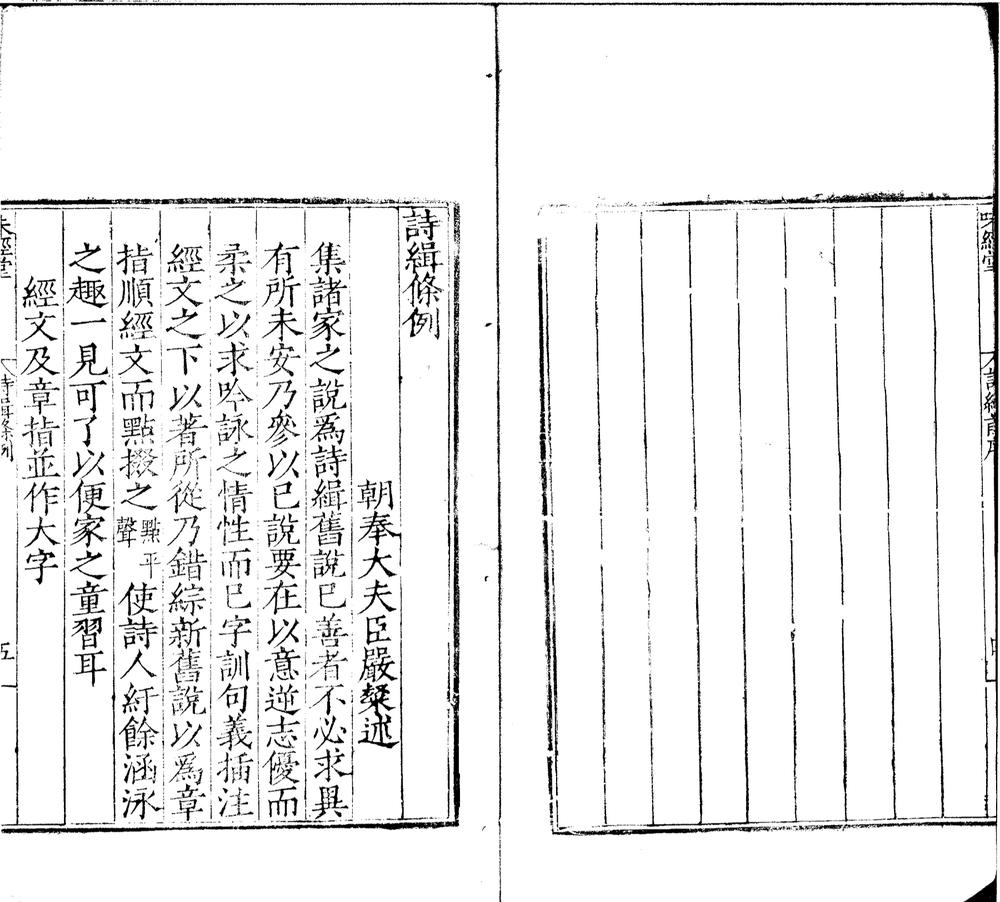 味經堂
詩緝前序
四
詩緝條例
朝奉大夫臣嚴粲述
集諸家之說爲詩緝舊說已善者不必求異
有所未安乃參以己說要在以意逆志優而
柔之以求吟詠之情性而已字訓句義插注
經文之下以著所從乃錯綜新舊說以爲章
指順經文而點掇之點平聲使詩人紆餘涵泳
之趣一見可了以便家之童習耳
經文及章指並作大字
味經堂
詩緝條例
五